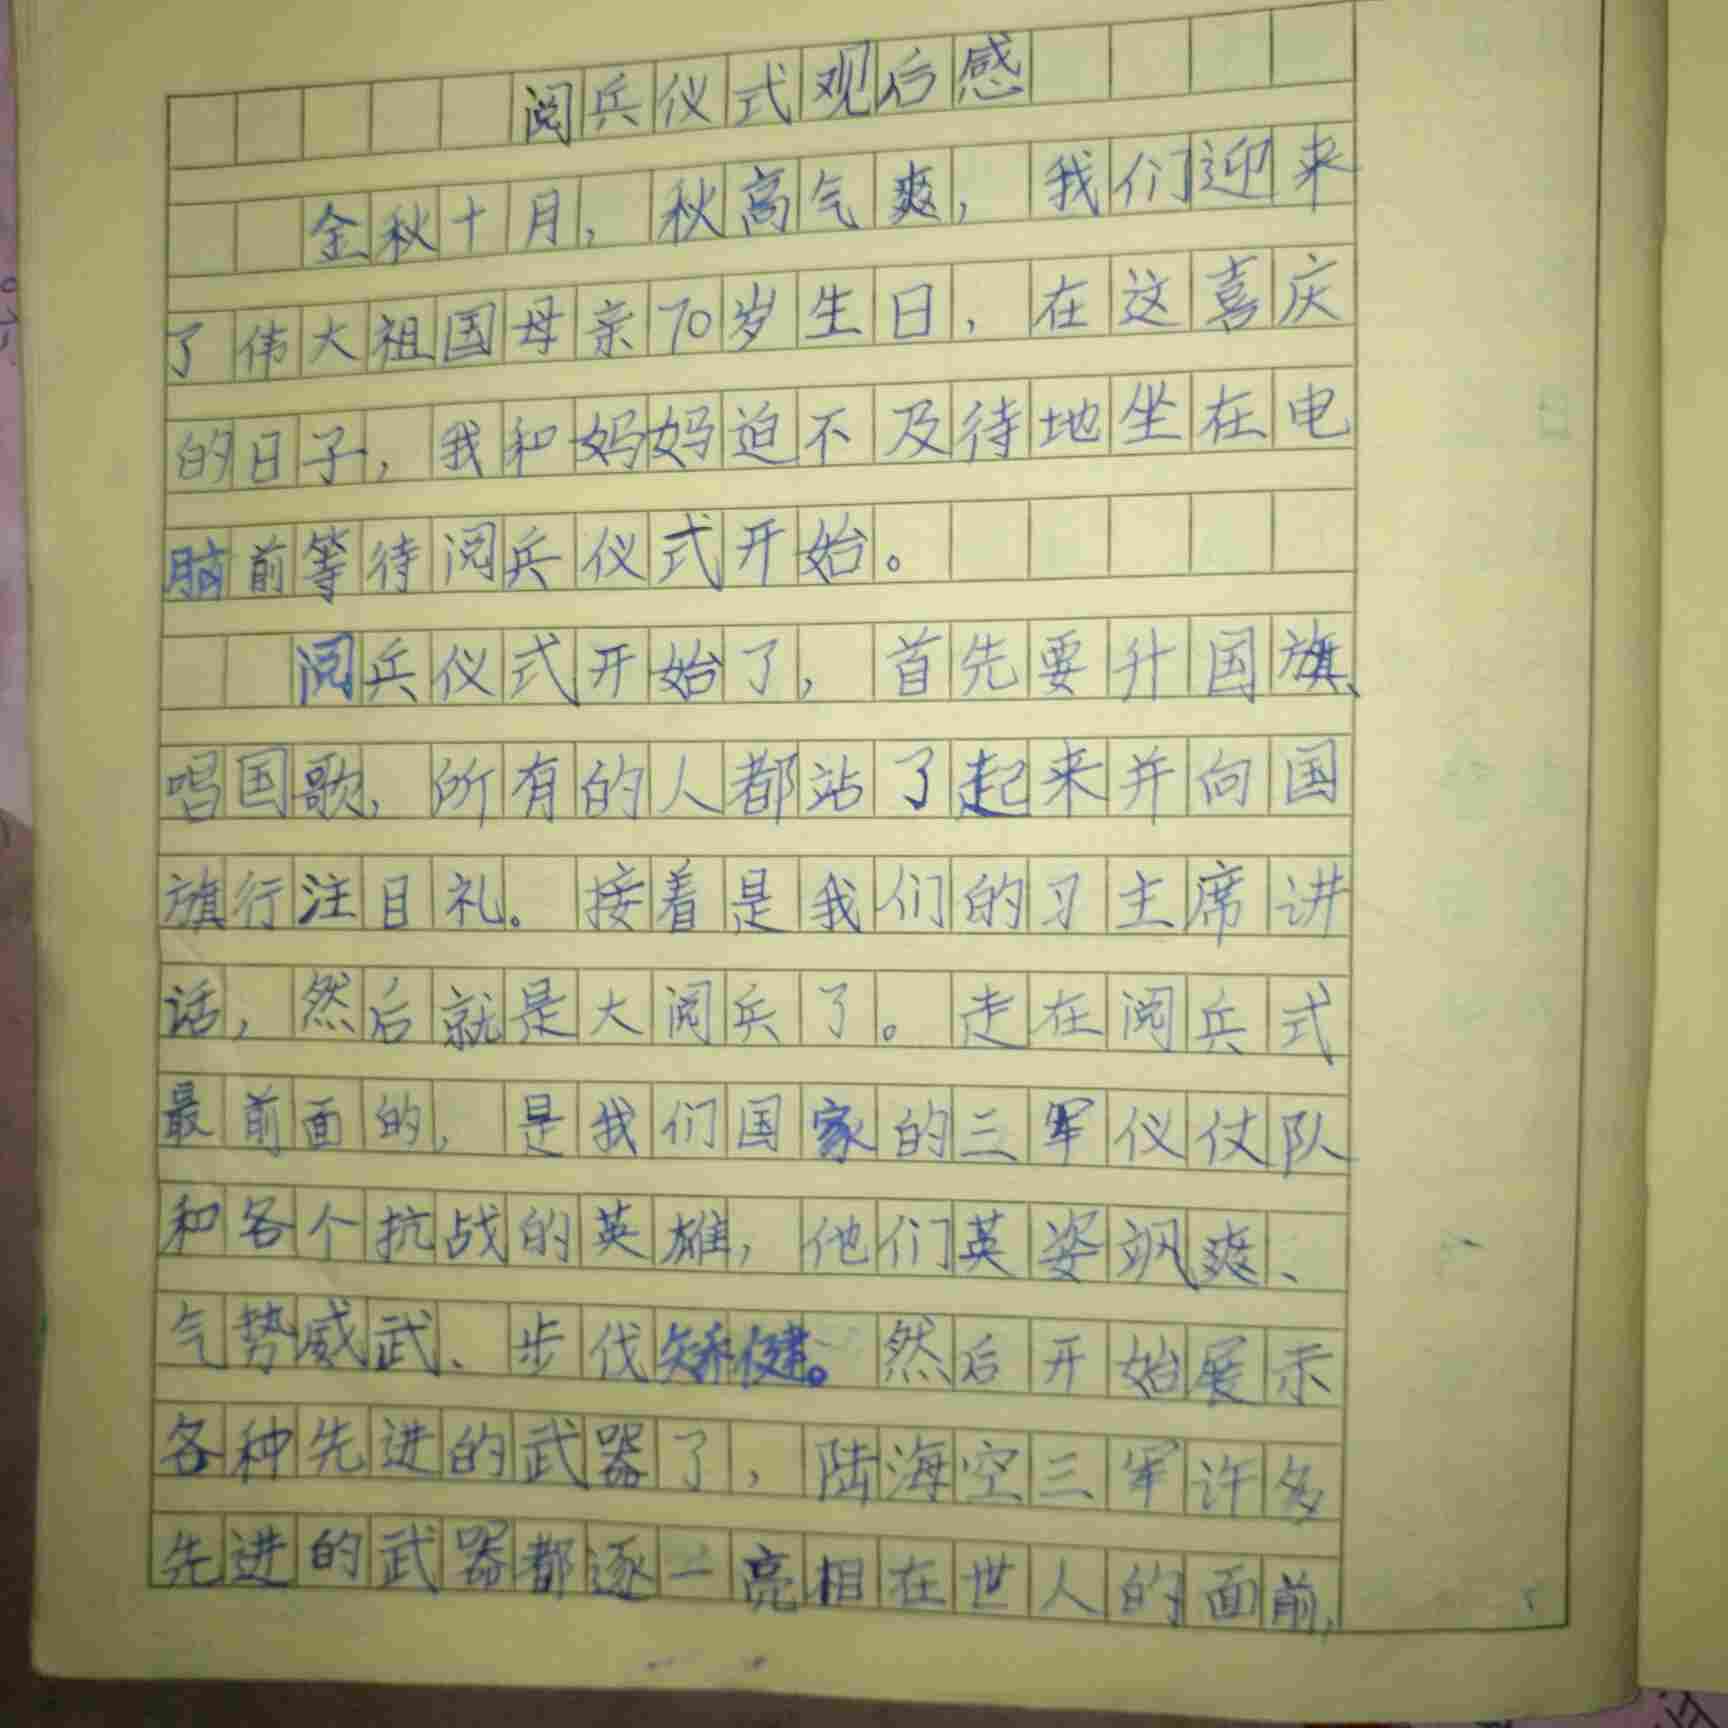 阅兵仪式观后感
金秋十月，秋高气爽，我们迎来
了伟大祖国母亲70岁生日，在这喜庆
的日子，我和妈妈迫不及待地坐在电
脑前等待阅兵仪式开始。
阅兵仪式开始了，首先要升国旗、
唱国歌，所有的人都站了起来并向国
旗行注目礼。接着是我们的习主席讲
话，然后就是大阅兵了。走在阅兵式
最前面的，是我们国家的三军仪仗队
和各个抗战的英雄，他们英姿飒爽、
气势威武、步伐矫健。然后开始展示
各种先进的武器了，陆海空三军许多
先进的武器都逐一亮相在世人的面前，